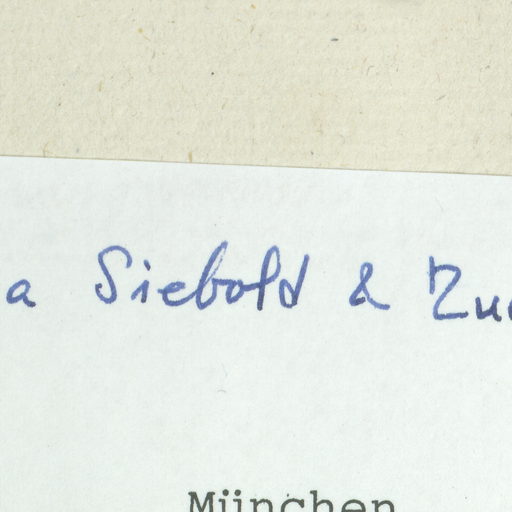 a Siebold & Zu
München